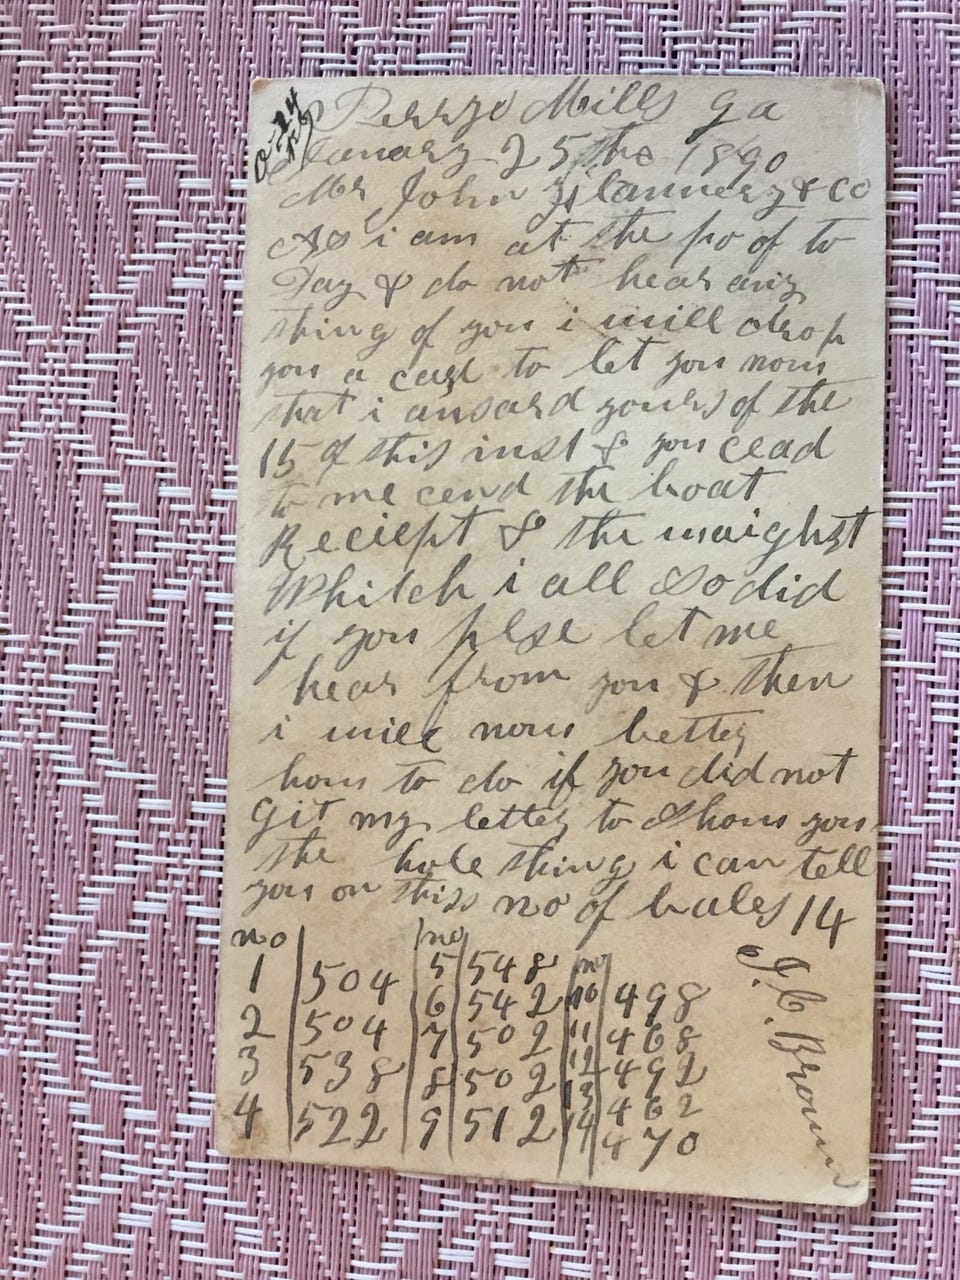 Perrys Mills ga
January 25 the 1890
Mr John Flannery & Co
As i am at the po of to
Day & do not hear any
thing of you i will drop
you a card to let you now
that i ansard yours of the
15 of this inst & you cead
to me cend the boat
Reciept & the waighst
Whitch i all so did
if you plse let me
hear from you & then
i will now better
how to do if you did not
Git my letter to Show you
the hole thing i can tell
you on thiss no of bales 14
no no no
1 504 5 548 10 498
2 504 6 542 11 468
3 538 7 502 12 492
4 522 8 502 13 462
9 512 14 470
J. C. Brown